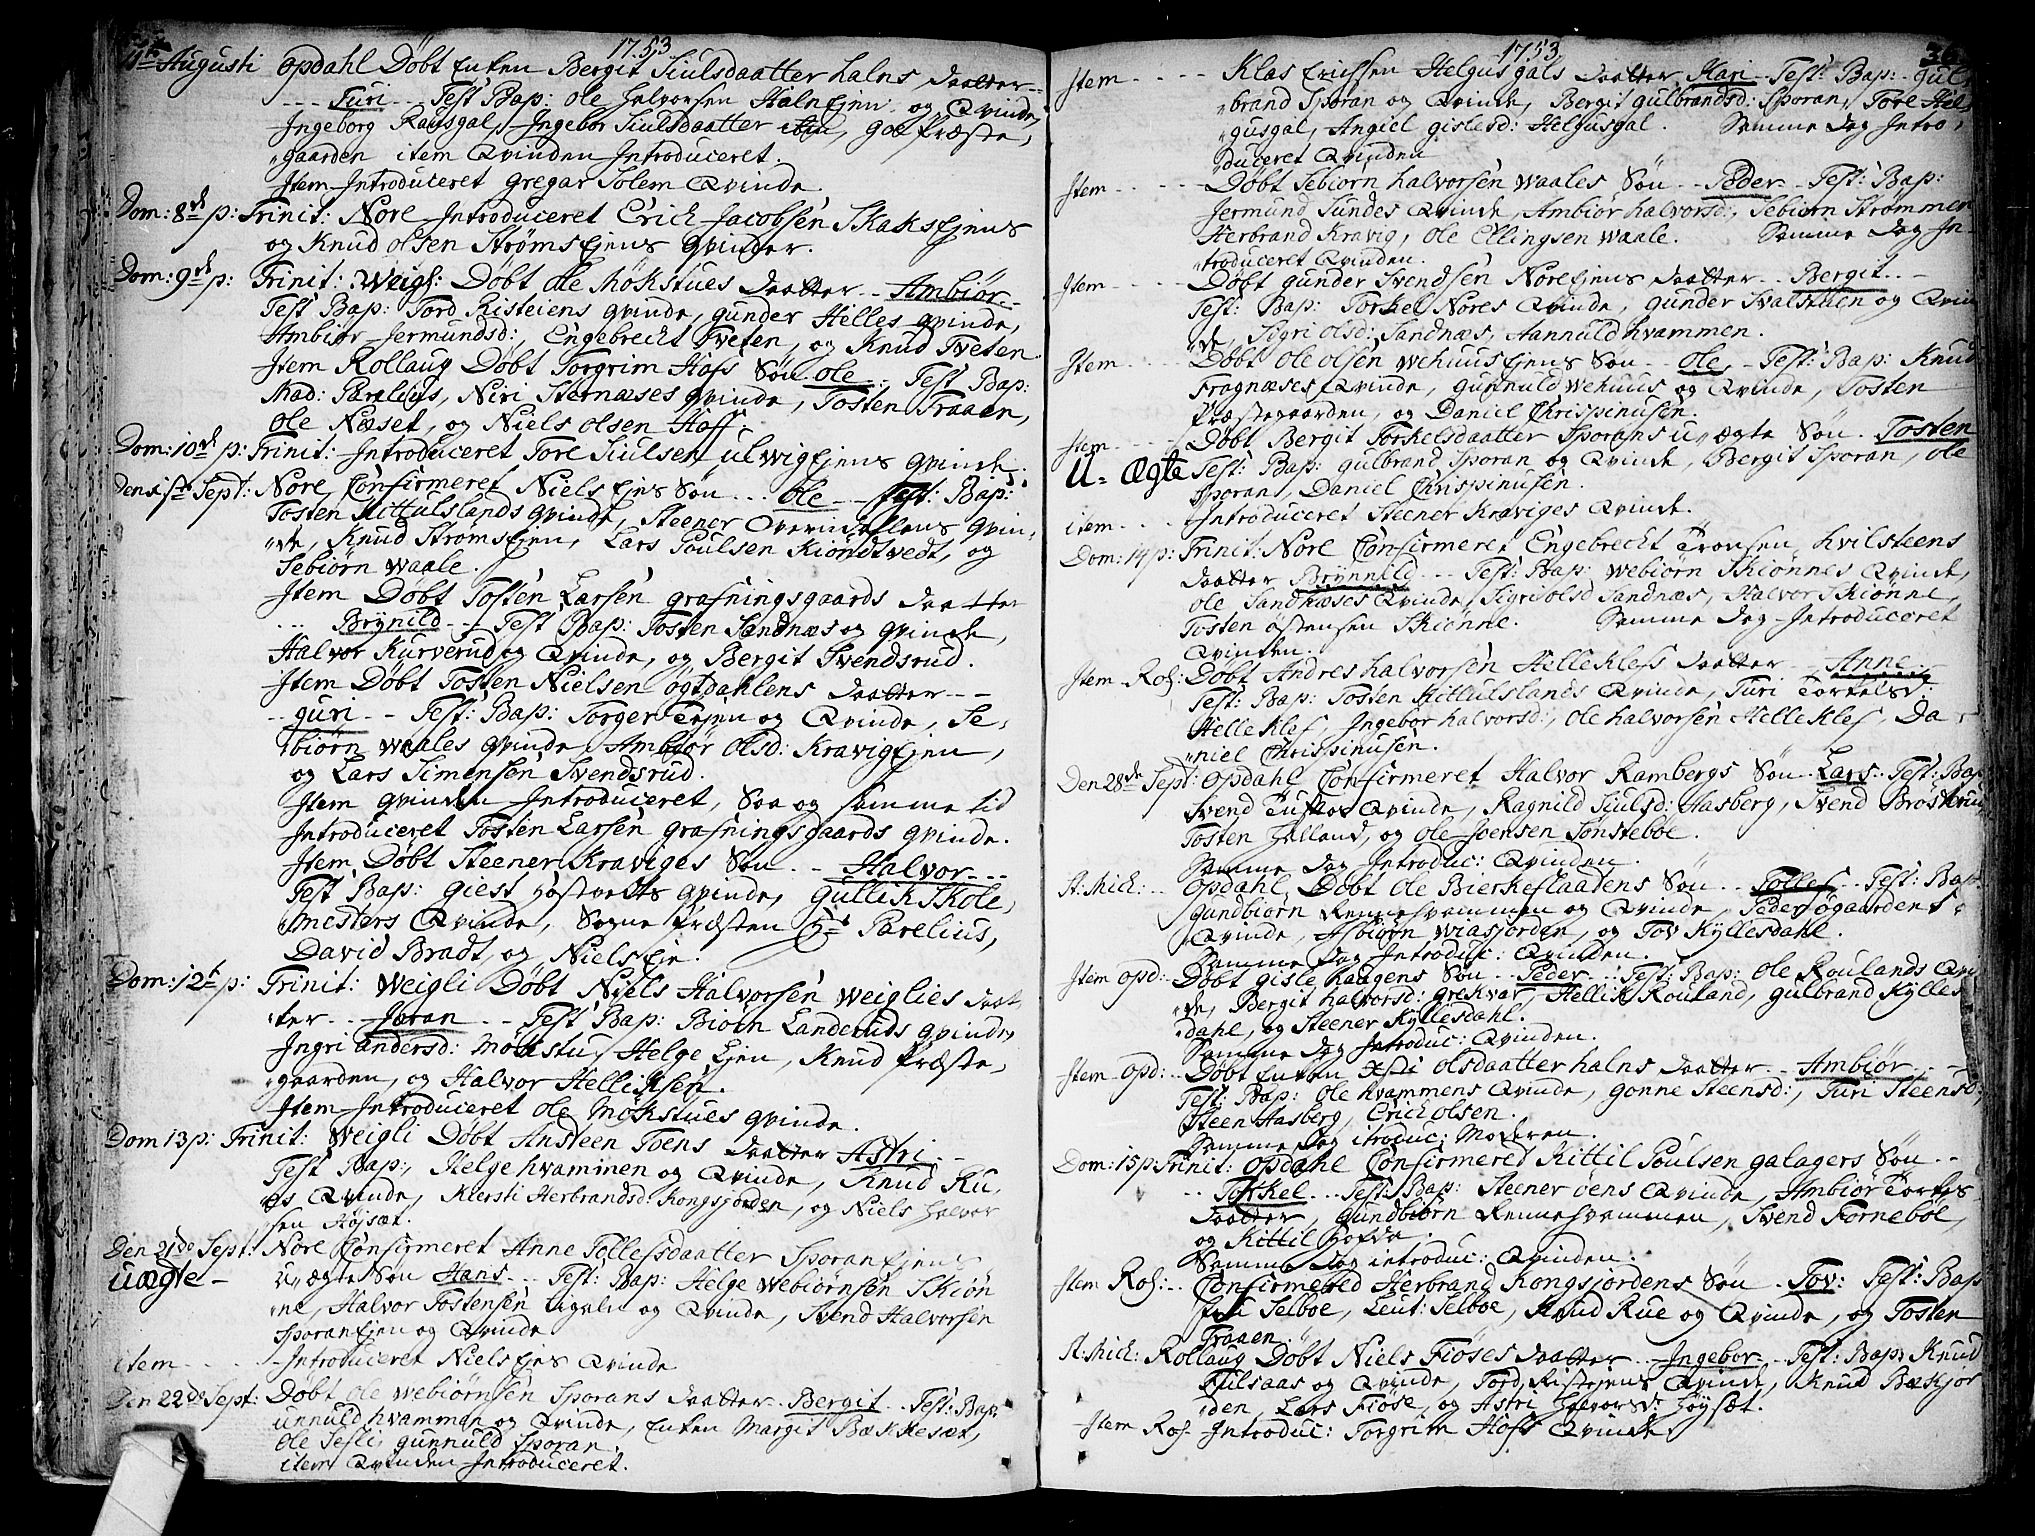 1753
Augusti Opdahl Døbt Enken Bergit Siulsdaatter halns daatter
Turi Test Bap: Ole Halvorsen Halnejen og Qvinde,
Ingeborg Rausgal, Ingebor Siulsdaatter ibid, Goe Præste,
gaarden item Qvinden Introduceret.
Item Introduceret Gregar Solem Qvinde.
Dom: 8de p: Trinit: Nore Introduceret Erich Jacobsen Skaksejens
og Knud Olsen Strømsejens Qvinder.
Dom: 9de p: Trinit: Weigl: Døbt Ole Mökstues daatter Ambiør
Test Bap: Tord Risteiens Qvinde, Gunder Helles Qvinde,
Ambiør Jermundsd:, Engebrecht Tveten, og Knud Tveten
Item Rollaug Døbt Torgrim Hofs Søn Ole Test Bap:
Mad: Parelius, Niri Sternæses Qvinde, Tosten Traaen,
Ole Næset, og Niels Olsen Hoff.
Dom: 10de p: Trinit: Introduceret Tore Siulsen Ulvigejens Qvinde.
Den 1ste Sept: Nore Confirmeret Niels Ejes Søn Ole Test: Bap:
Tosten Kittulslands Qvinde, Steener Overndallens Qvin,
de, Knud Strømsejen, Lars Poulsen Kiöndtvedt, og
Sebiørn Waale.
Item Døbt Tosten Larsen Grafningsgaards daatter
Brynild Test Bap: Tosten Sandnæs og Qvinde,
Halvor Kurverud og Qvinde, og Bergit Svendsrud.
Item Døbt Tosten Nielsen Ögtdahlens daatter
Guri Test: Bap: Torger Eejen og Qvinde, Se,
biørn Waales Qvinde, Ambiør Olsd: Kravigejen,
og Lars Simensen Svendsrud.
Item Qvinden Introduceret, Saa og samme tid
Introduceret Tosten Larsen Grafningsgaards Qvinde.
Item Døbt Steener Kraviges Søn Halvor
Test Bap: Giest Hostvedts Qvinde, Gullik Skole,
mesters Qvinde, Sogne Præsten Hr Parelius,
David Bradt, og Niels Eje.
Dom: 12te p: Trinit: Weigli Døbt Niels Halvorsen Weiglies daat
ter Joran Test Bap: Biorn Landeruds Qvinde,
Ingri Andersd: Mökstu, Helge Ejen, Knud Præste,
gaarden, og Halvor Helliksen.
Item Introduceret Ole Mökstues Qvinde.
Dom 13 p: Trinit: Weigli Døbt Ansteen Toens daatter Astri
Test Bap:, Helge Hvammen og Qvinde, Knud Ru,
es Qvinde, Kiersti Herbrandsd: Kongsjorden, og Niels Halvor
sen Höjsæt.
Den 21de Sept: Nore Confirmeret Anne Tollefsdaatter Sporanejens
uægte uægte Søn Hans Test: Bap: Helge Webiørnsen Skiön
ne, Halvor Tostensen og Qvinde, Svend Halvorsen
Sporanejen og Qvinde
item Introduceret Niels Ejes Qvinde
Den 22de Sept: Døbt Ole Webiørnsen Sporans daatter Bergit Test: Bap:
unnuld hvammen og Qvinde, Enken Margit Bækkesæt,
Ole Sesli, Gunnuld Sporan.
item Qvinden Introduceret.
1753
36
Item Klas Erichsen Helgusgals daatter Kari Test: Bap: Gul,
brand Sporan og Qvinde, Bergit Gulbrandsd: Sporan, Tore Hel,
gusgal, Angiel Gislesd: Helgusgal. Samme dag Intro,
duceret Qvinden
Item Døbt Sebiørn Halvorsen Waales Søn Peder Test: Bap:
Jermund Sundes Qvinde, Ambiør Halvorsd:, Sebiørn Strømmen
Herbrand Kravig, Ole Ellingsen Waale. Samme dag In
troduceret Qvinden.
Item Døbt Gunder Svendsen Norejens daatter Bergit
Test: Bap: Torkel Nores Qvinde, Gunder Svalsthen og Qvin
de, Sigri Olsd: Sandnæs, Aannuld Hvammen.
Item Døbt Ole Olsen Wehuusejens Søn Ole Test: Bap: Knud
Fragnæses Qvinde, Gunnuld Wehuus og Qvinde, Tosten
Præstegaarden, og Daniel Chrispinusen.
Item Døbt Bergit Torkelsdaatter Sporans uægte Søn Tosten
U-ægte Test: Bap: Gulbrand Sporan og Qvinde, Bergit Sporan, Ole
Sporan, Daniel Chrispinusen.
item Introduceret Steener Kraviges Qvinde.
Dom: 14 p: Trinit: Nore Confirmeret Engebrecht Tronsen Hvilsteens
daatter Brynnild Test: Bap: Webiørn Skiönnes Qvinde,
Ole Sandnæses Qvinde, Sigri Olsd Sandnæs, Halvor Skiönne,
Tosten Östensen Skiönne. Samme dag Introduceret
Qvinden.
Item Rol: Døbt Andres Halvorsen Helleklefs daatter Anne
Test: Bap: Tosten Kittulslands Qvinde, Turi Torkelsd:
Helleklef, Ingebor Halvorsd:, Ole Halvorsen Helleklef, Da,
niel Chrispinusen.
Den 28de Sept: Opdahl Confirmeret Halvor Rambergs Søn Lars Test: Bap
Svend Tuftes Qvinde, Ragnild Siulsd: Aasberg, Svend Brøsterud,
Tosten Halland, og Ole Joensen Sønsteböe.
Samme dag Introduc: Qvinden.
St. Mich: Opdahl Døbt Ole Bierkeflaatens Søn Tollef Test: Bap:
Gundbiørn Rennesvammen og Qvinde, Peder Øgaardens
Qvinde, Asbiørn Wiasjorden, og Tov Kyllesdahl.
Samme dag Introduc: Qvinden.
Item Opd: Døbt Gisle Haagens Søn Peder Test: Bap: Ole Roulands Qvin
de, Bergit Halvorsd: Grekvar, Hellik Rouland, Gulbrand Kylles
dahl, og Steener Kyllesdahl.
Samme dag Introduc: Qvinden.
Item Opd: Døbt Enken Olsdaatter Halns daatter Ambiør
Test: Bap: Ole Hvammens Qvinde, Gonne Steensd:, Turi Steensd:,
Steen Aasberg, Erich Olsen.
Samme dag itroduc: Moderen.
Dom: 15 p Trinit: Opdahl Confirmered Kittil Poulsen Galagers Søn
Torkel Test: Bap: Steener Öens Qvinde, Ambiør Torkels
daatter, Gundbiørn Rennesvammen, Svend Forneböe,
og Kittil Hofde.
Samme dag introduc: Qvinden.
Item Rol: Confirmered Herbrand Kongsjordens Søn Tov: Test: Bap
fru Selboe, Leut: Selboe, Knud Rue og Qvinde, og Tosten
Traaen.
St: Mich: Rollaug Døbt Niels Fiöses daatter Ingebor Test: Bap: Knud
Kulsaas og Qvinde, Tord Ristejens Qvinde, Knud Bækjor
den, Lars Fiöse, og Astri Halvorsd: Höysæt.
Item Rol. Introduc: Torgrim Hofs Qvinde